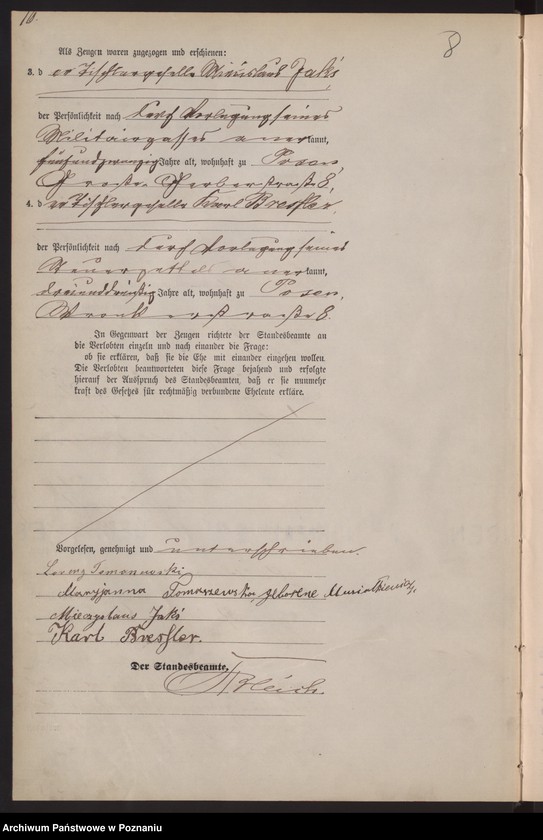 8
Als Zeugen waren zugezogen und erschienen:
3. d er Tischlergeselle Jaks,
der Persönlichkeit nach durch Vorlegung seines
Militairpasses anerkannt,
fünfundzwanzig Jahre alt, wohnhaft zu Posen,
Große Gerberstraße 8,
4. d er Tischlergeselle Karl Bressler,
der Persönlichkeit nach durch Vorlegung seines
Steuerzettels anerkannt,
dreiunddreißig Jahre alt, wohnhaft zu Posen,
Wronkerstraße 8.
In Gegenwart der Zeugen richtete der Standesbeamte an
die Verlobten einzeln und nach einander die Frage:
ob sie erklären, daß sie die Ehe mit einander eingehen wollen.
Die Verlobten beantworteten diese Frage bejahend und erfolgte
hierauf der Ausspruch des Standesbeamten, daß er sie nunmehr
kraft des Gesetzes für rechtmäßig verbundene Eheleute erkläre.
Vorgelesen, genehmigt und unterschrieben.
Maryjanna Tomaszewska, geborene
Jaks
Karl Bressler.
Der Standesbeamte.
Archiwum Państwowe w Poznaniu